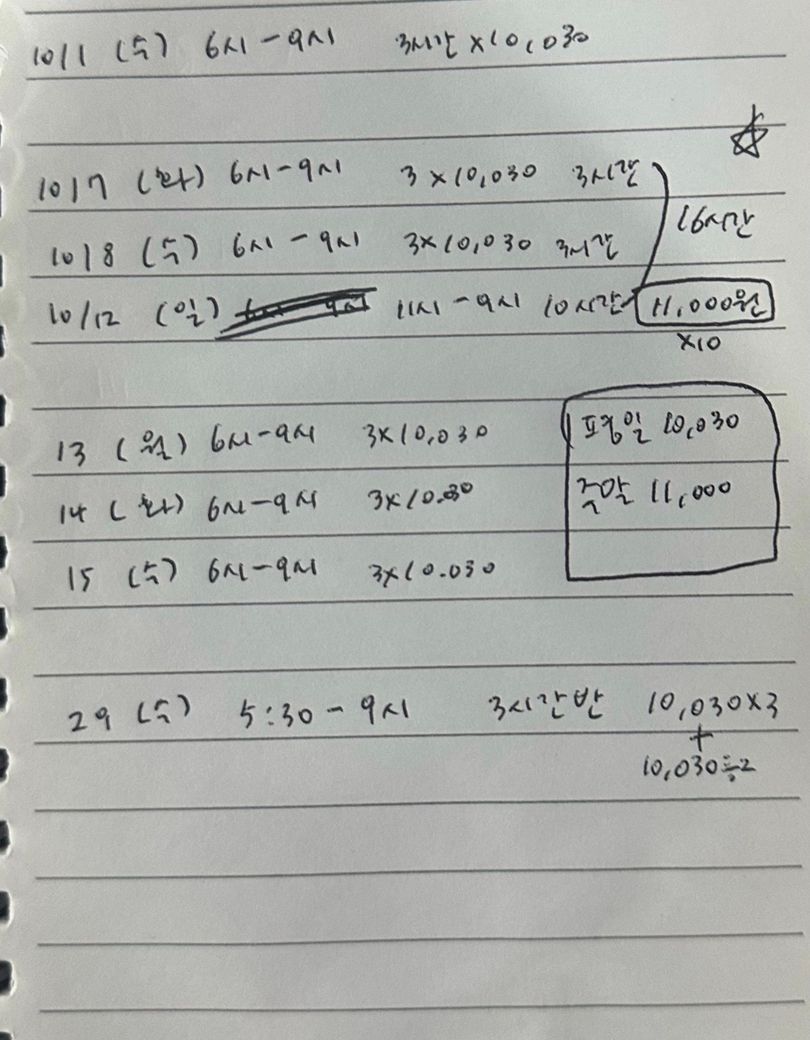 10/1 (수) 6시-9시 3시간 x10,030
10/7 (화) 6시-9시 3x10,030 3시간
16시간
10/8 (수) 6시-9시 3x10,030 3시간
10/12 (일) 11시-9시 10시간 11,000원
x10
13 (월) 6시-9시 3x10,030
평일 10,030
14 (화) 6시-9시 3x10.030
주말 11,000
15 (수) 6시-9시 3x10.030
29 (수) 5:30-9시 3시간반 10,030x3
+
10,030÷2